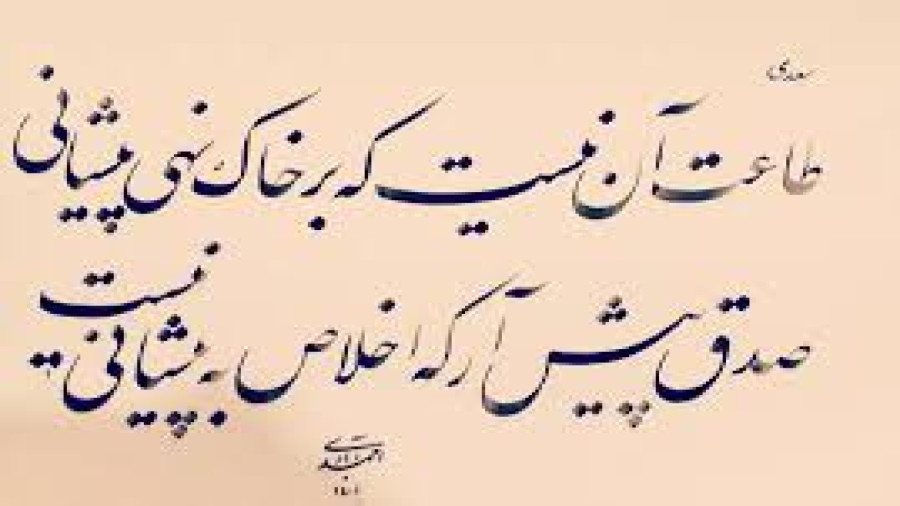 سعدی
طاعت آن نیست که بر خاک نهی پیشانی
صدق پیش آر که اخلاص به پیشانی نیست